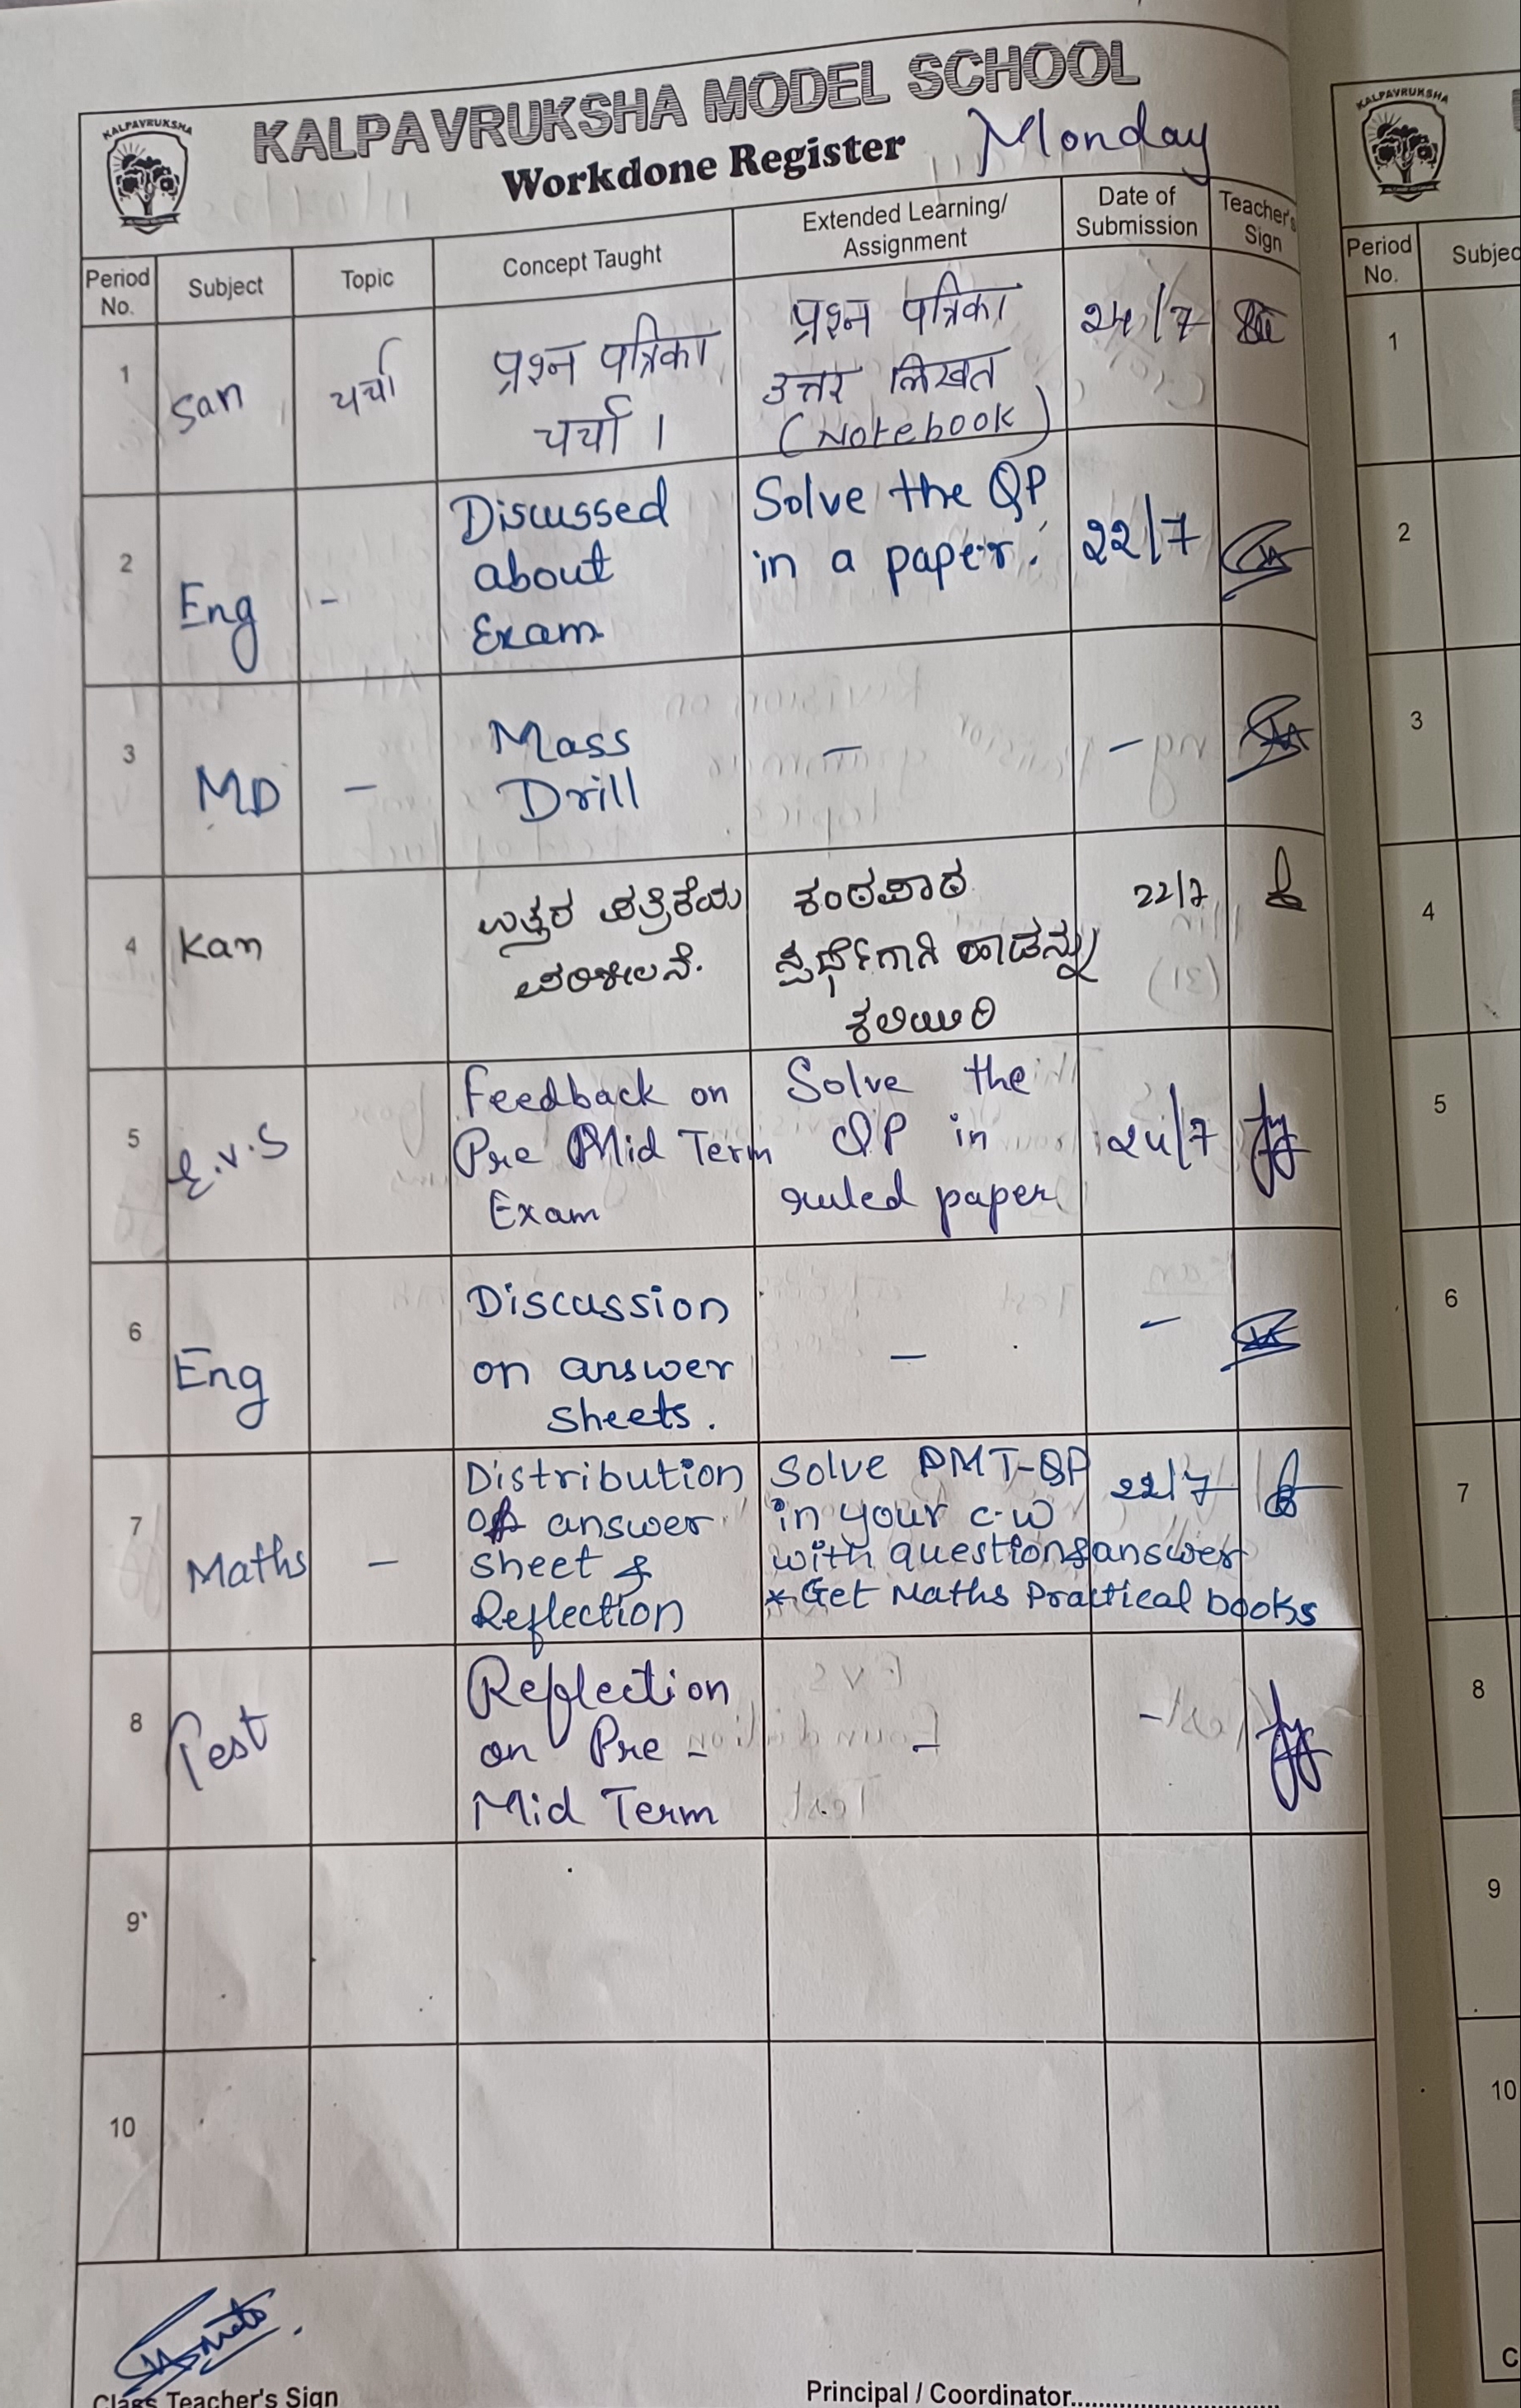 KALPAVRUKSHA
KALPAVRUKSHA MODEL SCHOOL
Workdone Register Monday
Period No. Subject Topic Concept Taught Extended Learning/ Assignment Date of Submission Teacher's Sign
1 San चर्चा प्रश्न पत्रिका प्रश्न पत्रिका 24/7
चर्चा । उत्तर लिखत
(Notebook)
2 Eng - Discussed Solve the QP 22/7
about in a paper.
Exam
3 MD - Mass - -
Drill
4 Kan ಉತ್ತರ ಪತ್ರಿಕೆಯ ಕಂಠಪಾಠ 22/7
ಪರಿಶೀಲನೆ. ಸ್ಪರ್ಧೆಗಾಗಿ ಹಾಡನ್ನು
ಕಲಿಯಿರಿ
5 E.V.S Feedback on Solve the 24/7
Pre Mid Term QP in
Exam ruled paper
6 Eng Discussion - -
on answer
sheets.
7 Maths - Distribution Solve PMT-QP 22/7
of answer in your c.w
sheet & with question & answer
Reflection * Get Maths Practical books
8 Test Reflection - -
on Pre -
Mid Term
9
10
Class Teacher's Sign Principal / Coordinator
KALPAVRUKSHA
Period No.
1
2
3
4
5
6
7
8
9
10